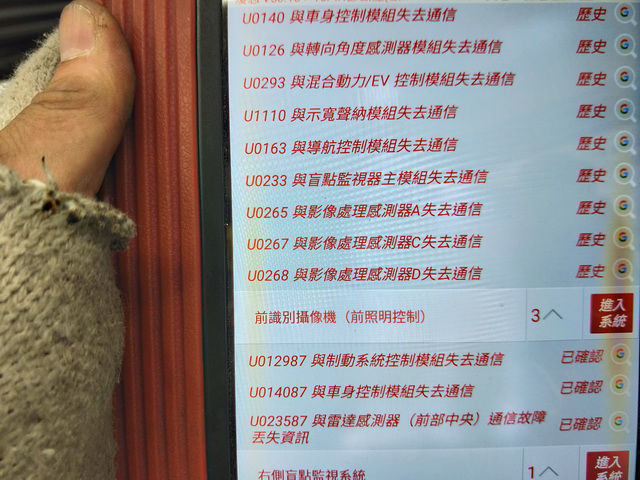 U0140 與車身控制模組失去通信 歷史
U0126 與轉向角度感測器模組失去通信 歷史
U0293 與混合動力/EV 控制模組失去通信 歷史
U1110 與示寬聲納模組失去通信 歷史
U0163 與導航控制模組失去通信 歷史
U0233 與盲點監視器主模組失去通信 歷史
U0265 與影像處理感測器A失去通信 歷史
U0267 與影像處理感測器C失去通信 歷史
U0268 與影像處理感測器D失去通信 歷史
前識別攝像機（前照明控制） 3 進入
系統
U012987 與制動系統控制模組失去通信 已確認
U014087 與車身控制模組失去通信 已確認
U023587 與雷達感測器（前部中央）通信故障 已確認
丟失資訊
右側盲點監視系統 1 進入
系統